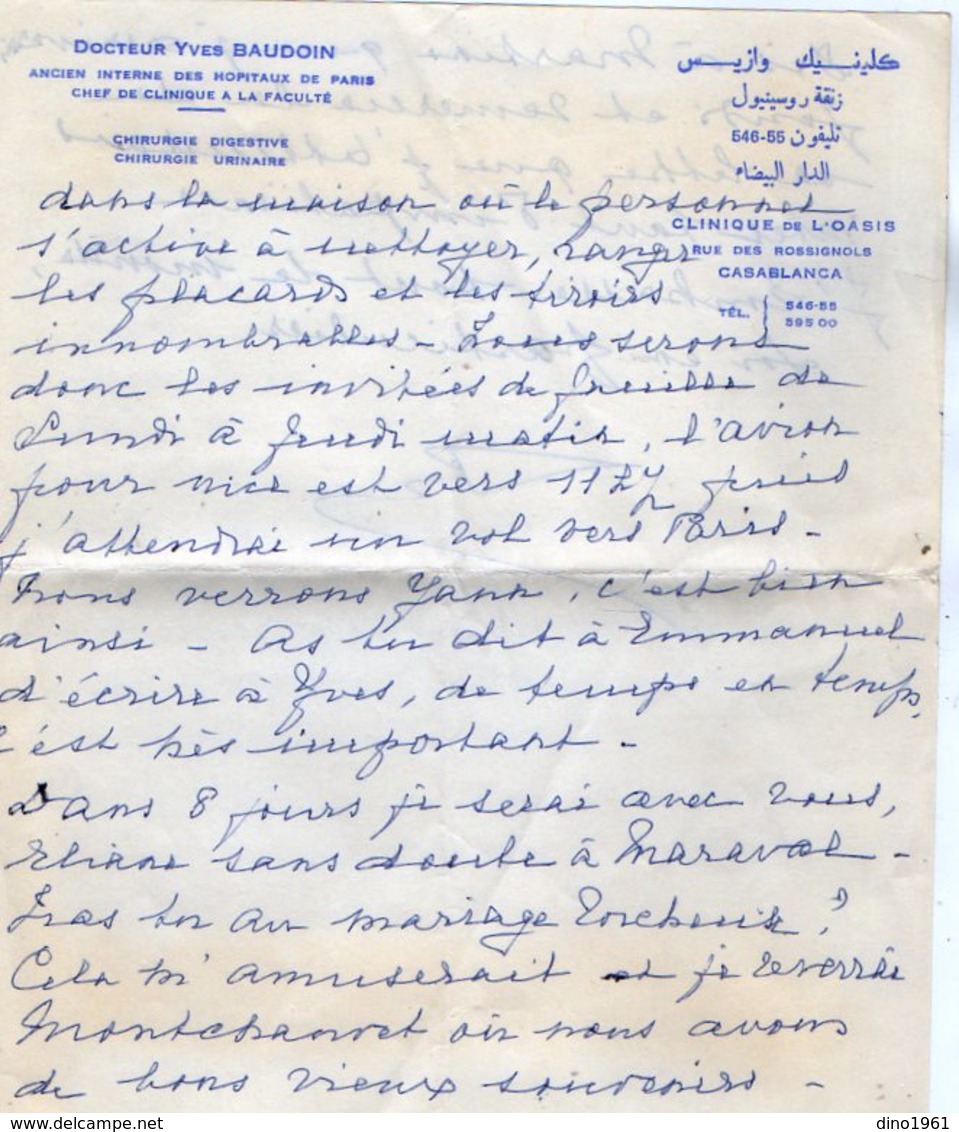 DOCTEUR YVES BAUDOIN
ANCIEN INTERNE DES HOPITAUX DE PARIS
CHEF DE CLINIQUE A LA FACULTÉ
CHIRURGIE DIGESTIVE
CHIRURGIE URINAIRE
كلينيك وازيس
زنقة روسينيول
تليفون 55-546
الدار البيضاء
CLINIQUE DE L'OASIS
RUE DES ROSSIGNOLS
CASABLANCA
TÉL. 546-55
595 00
dans la maison où le personnel
s'active à nettoyer, ranger
les placards et les tiroirs
innombrables - Nous serons
donc les invitées de de
Lundi à Jeudi matin, l'avion
pour nice est vers 11 h puis
j'attendrai un vol vers Paris -
Nous verrons Yann, c'est bien
ainsi - As tu dit à Emmanuel
d'écrire à Yves, de temps en temps,
c'est très important -
Dans 8 jours je serai avec vous,
Eliane sans doute à Maraval -
Iras tu au mariage ?
Cela m'amuserait et je reverrai
Montchauvet où nous avons
de bons vieux souvenirs -
dino1961